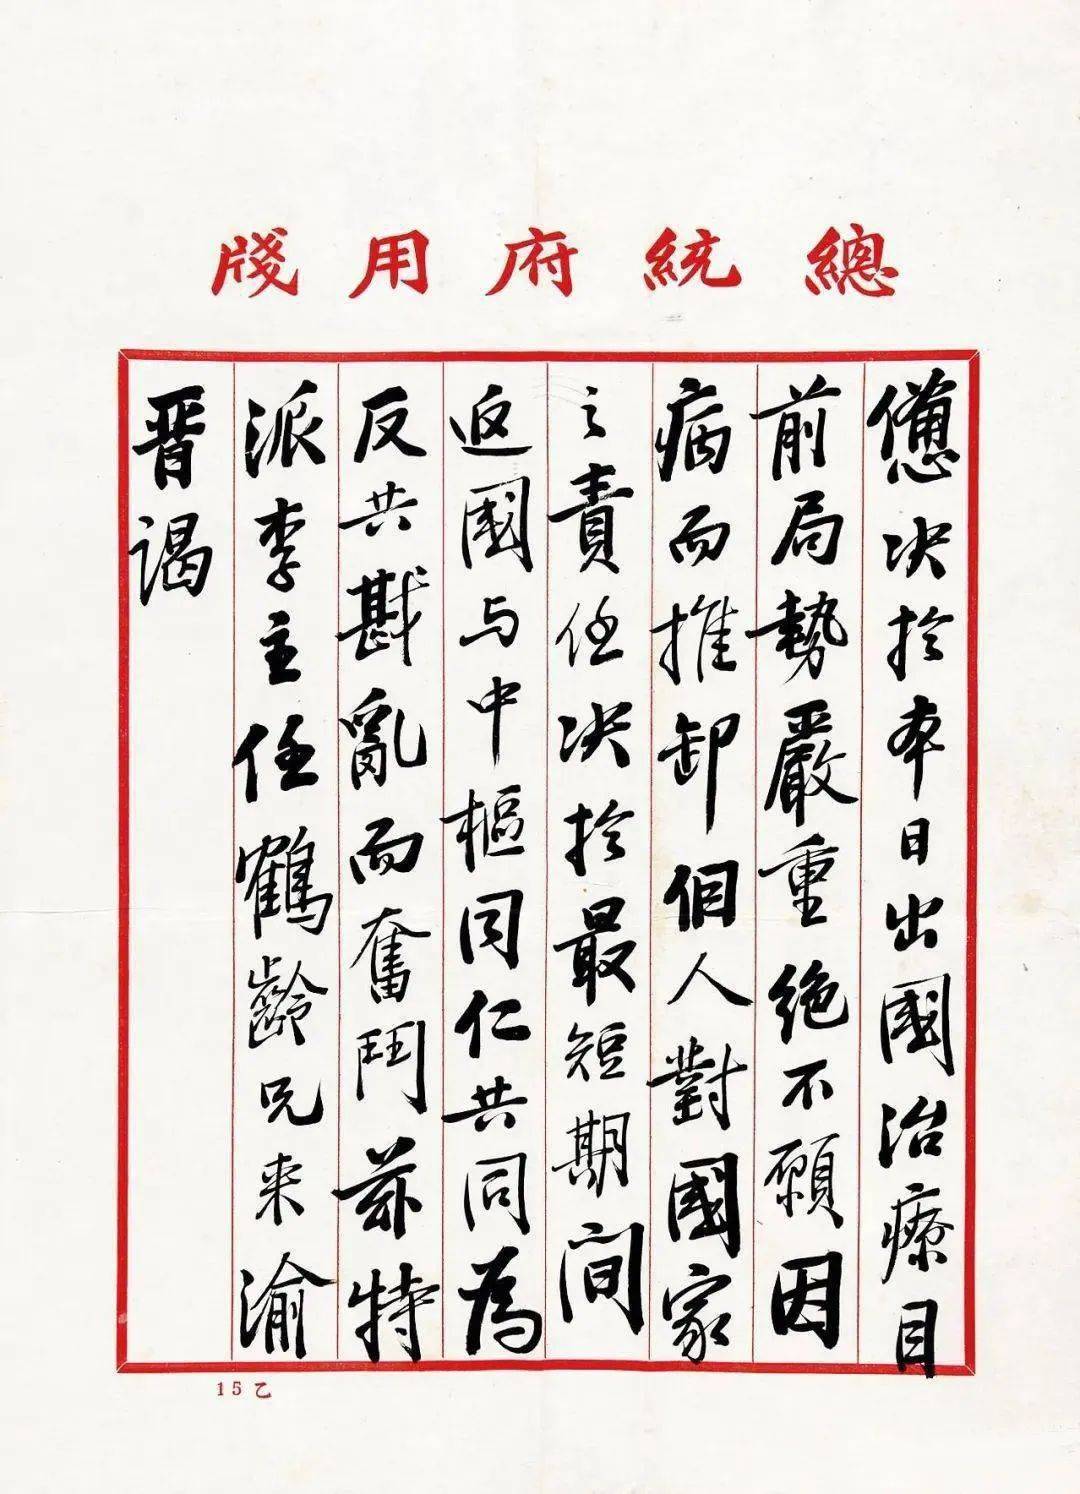 總統府用牋
憊决於本日出國治療目
前局勢嚴重絶不願因
病而推卸個人對國家
之責任决於最短期间
返國与中樞同仁共同為
反共戡亂而奮鬥兹特
派李主任鶴齡兄来渝
晋谒
15乙